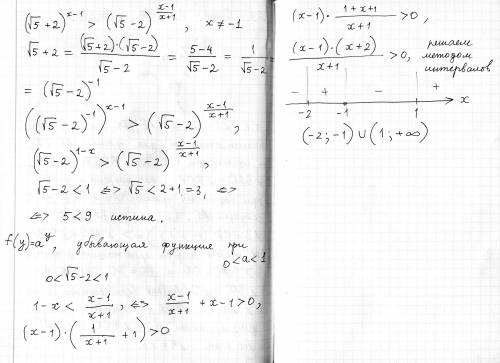 (√5+2)^(x-1) > (√5-2)^((x-1)/(x+1)), x ≠ -1
√5+2 = ((√5+2)·(√5-2))/(√5-2) = (5-4)/(√5-2) = 1/(√5-2)
= (√5-2)^(-1)
((√5-2)^(-1))^(x-1) > (√5-2)^((x-1)/(x+1)),
(√5-2)^(1-x) > (√5-2)^((x-1)/(x+1)),
√5-2 < 1 ⇔ √5 < 2+1 = 3, ⇔
⇔ 5 < 9 истина.
f(y) = a^y, убывающая функция при
0 < a < 1
0 < √5-2 < 1
1-x < (x-1)/(x+1), ⇔ (x-1)/(x+1) + x-1 > 0,
(x-1)·(1/(x+1) + 1) > 0
(x-1)·(1+x+1)/(x+1) > 0,
((x-1)·(x+2))/(x+1) > 0, решаем
методом
интервалов
- + - +
-2 -1 1 x
(-2; -1) ∪ (1; +∞)